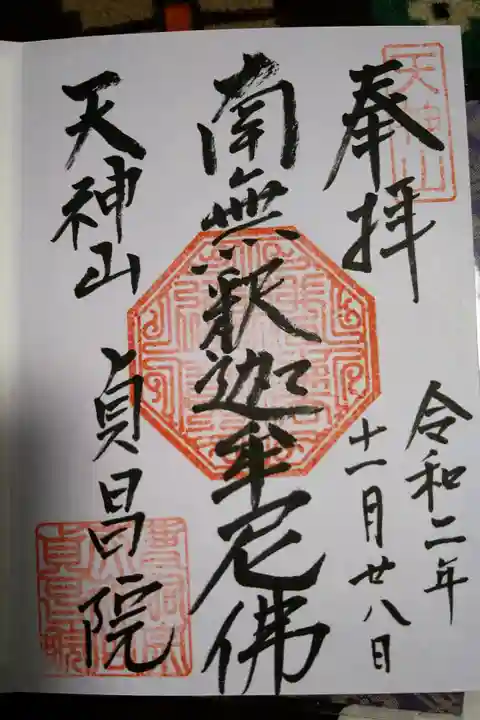 奉拝
天神山
令和二年
十一月廿八日
南無釈迦牟尼佛
天神山 貞昌院
曹洞宗
貞昌院